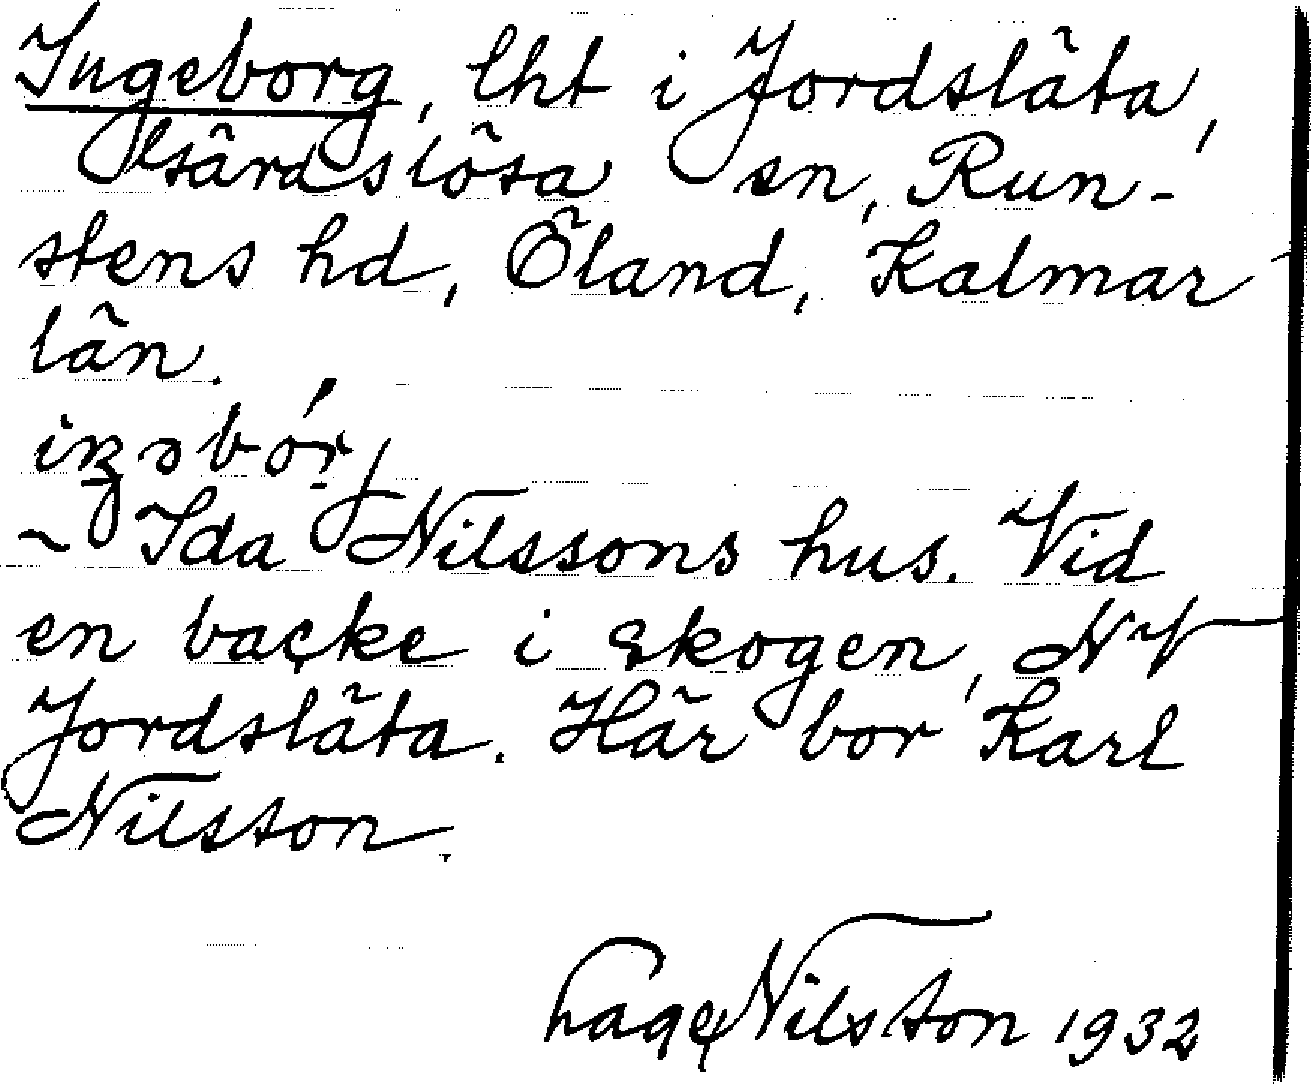 Ingeborg, lht i Jordsläta,
Gärdslösa sn, Run-
stens hd, Öland, Kalmar
län.
~ Ida Nilssons hus. Vid
en backe i skogen, NV
Jordsläta. Här bor Karl
Nilston.
Nilston 1932